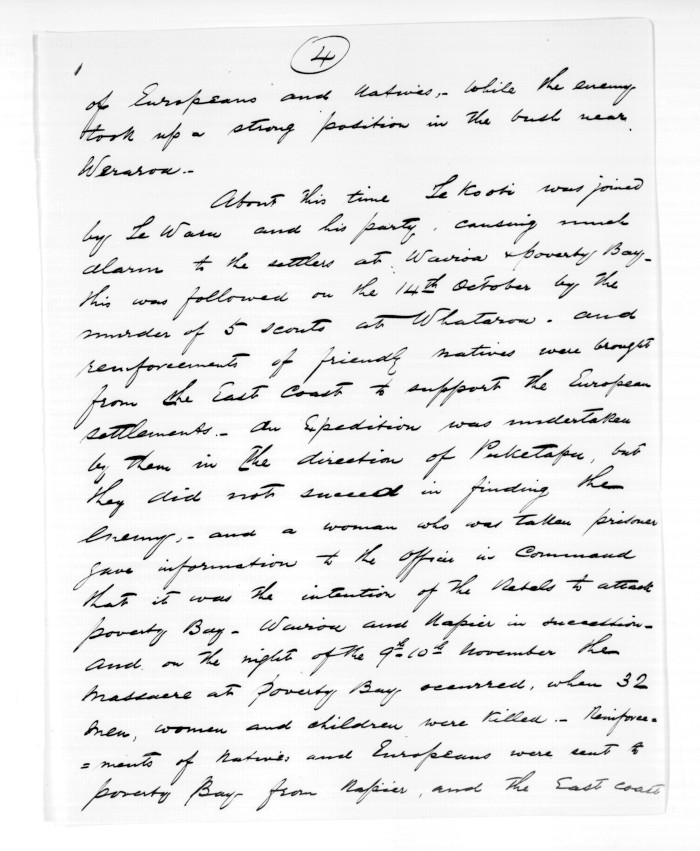 4
of Europeans and Natives, - while the enemy
took up a strong position in the bush near
Weraroa. -
About this time Te Kooti was joined
by Te Waru and his party, causing much
alarm to the settlers at Wairoa & poverty Bay -
this was followed on the 14th October by the
murder of 5 scouts at Whataroa. and
reinforcements of friendly natives were brought
from the East Coast to support the European
settlements. - An Expedition was undertaken
by them in the direction of Puketapu, but
they did not succeed in finding the
Enemy, - and a woman who was taken prisoner
gave information to the Officer in Command
that it was the intention of the Rebels to attack
poverty Bay - Wairoa and Napier in succession -
and on the night of the 9th-10th November the
Massacre at poverty Bay occurred, when 32
men, women and children were Killed. - Reinforce=
=ments of Natives and Europeans were sent to
poverty Bay from Napier, and the East coast